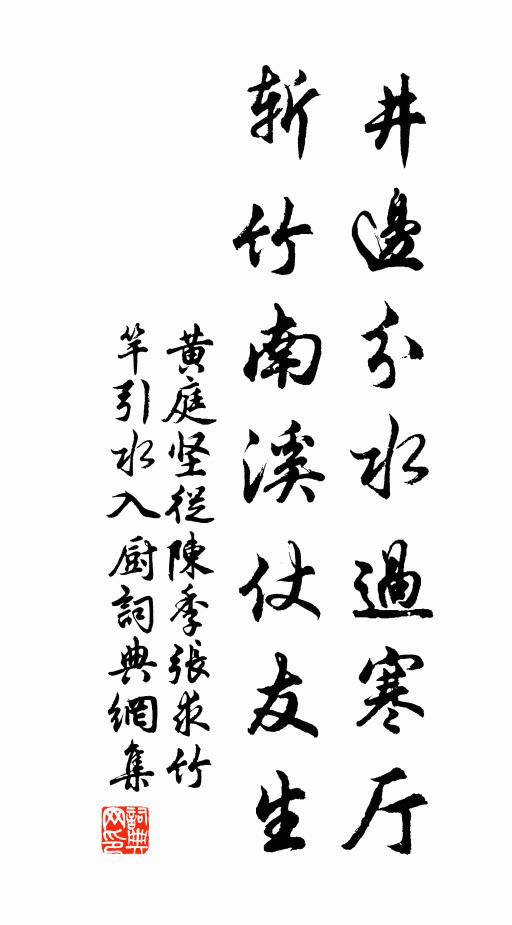 井邊分水過寒厅
斩竹南溪仗友生
黄庭坚從陳季張求竹
竿引水入厨詞典網集
詞典网印